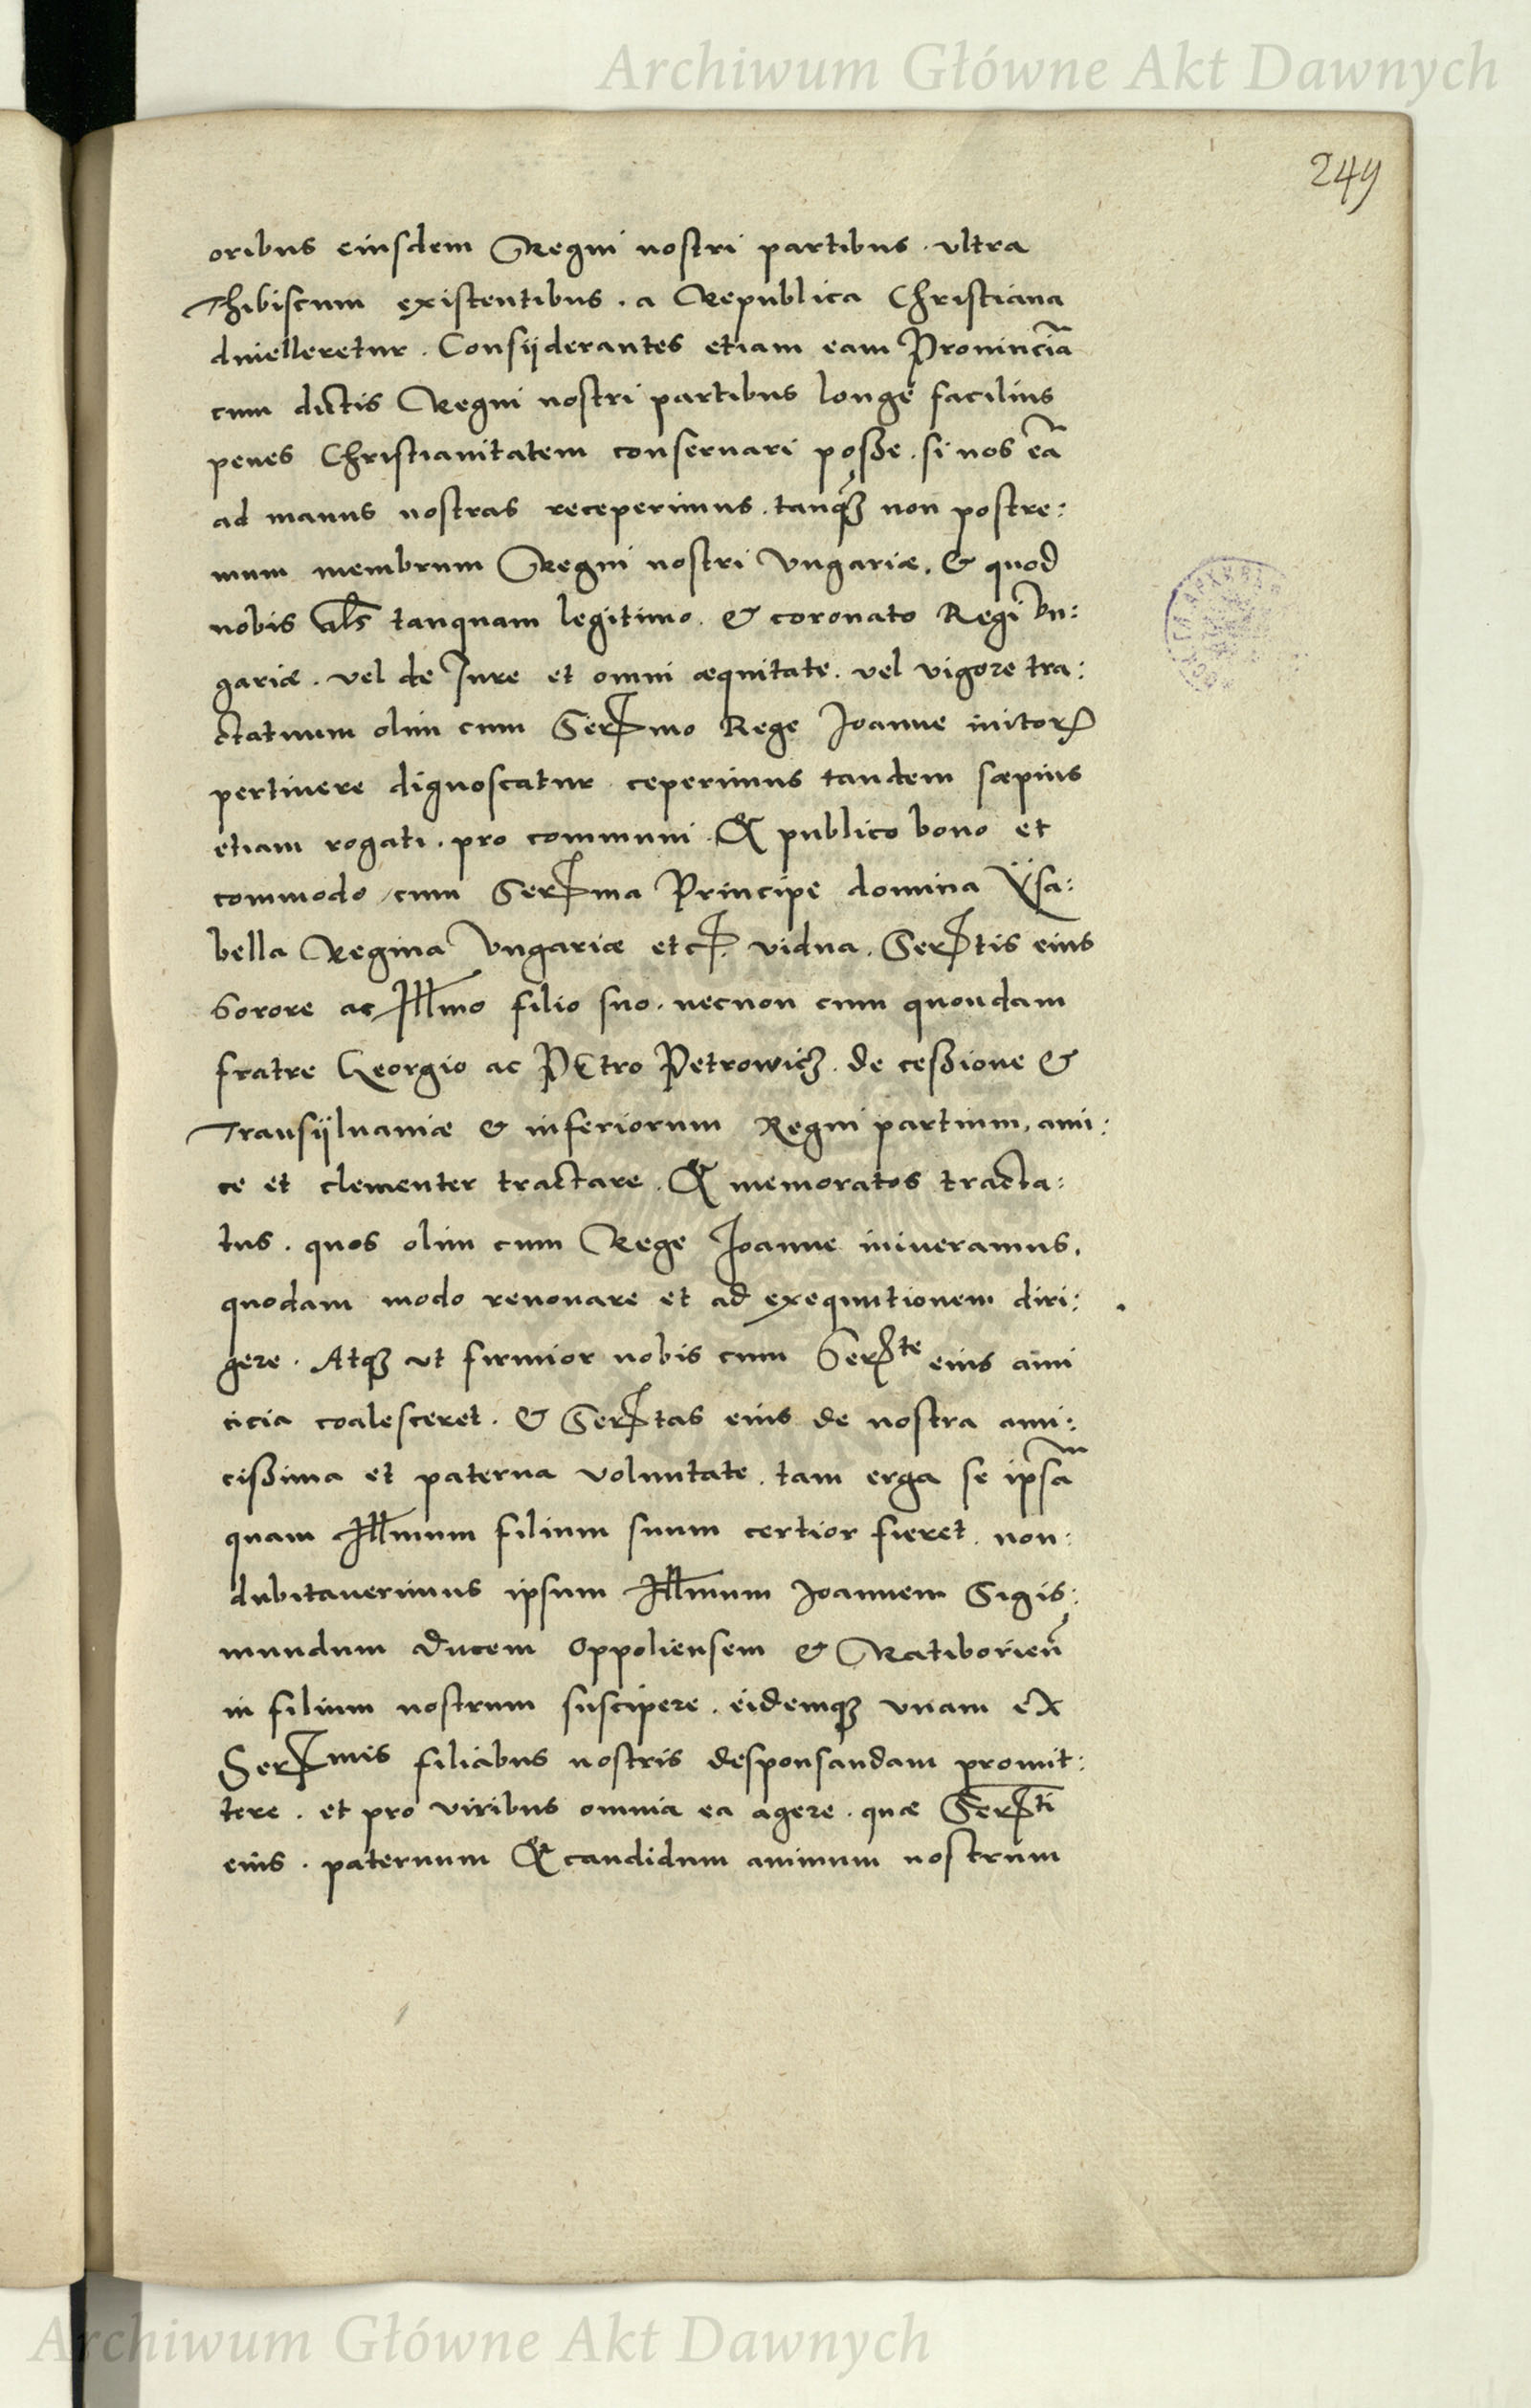 Archiwum Główne Akt Dawnych
249
oribus eiusdem Regni nostri partibus . ultra
Thibiscum existentibus . a Republica Christiana
diuelleretur . Consÿderantes etiam eam Prouinciã
cum dictis Regni nostri partibus longe facilius
penes Christianitatem conseruari posße . si nos eã
ad manus nostras receperimus . tanq̃ʒ non postre:
mum membrum Regni nostri Vngariæ . & quod
nobis als̃ tanquam legitimo . & coronato Regi Vn:
gariæ . vel de Jure et omni æquitate . vel vigore tra:
ctatuum olim cum Serꝑmo Rege Joanne initoꝝ
pertinere dignoscatur ceperimus tandem sæpius
etiam rogati . pro communi . & publico bono et
commodo / cum Serꝑma Principe domina Ÿsa:
bella Regina Vngariæ etcꝑ. vidua . Serꝑtis eius
Sorore ac Jllmo filio suo . necnon cum quondam
fratre Georgio ac Petro Petrowicʒ . de ceßione &
Transÿluaniæ & inferiorum Regni partium, ami:
ce et clementer tractare . & memoratos tracta:
tus . quos olim cum Rege Joanne iniueramus,
quodam modo renouare et ad exequutionem diri:
gere . Atqʒ ut firmior nobis cum Serꝑte eius ami
cicia coalesceret . & Serꝑtas eius de nostra ami:
cißima et paterna voluntate . tam erga se ipsãm
quam Jllmum filium suum certior fieret . non:
dubitauerimus ipsum Jllmum Joannem Sigis:
mundum Ducem Oppoliensem & Ratiborieñ
in filium nostrum suscipere . eidemqʒ vnam ex
Serꝑmis filiabus nostris desponsandam promit:
tere . et pro viribus omnia ea agere . quæ Serꝑti
eius . paternum & candidum animum nostrum
Archiwum Główne Akt Dawnych